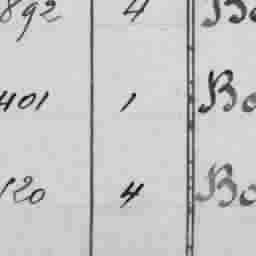 892 4 Bo
401 1 Bo
120 4 Bo